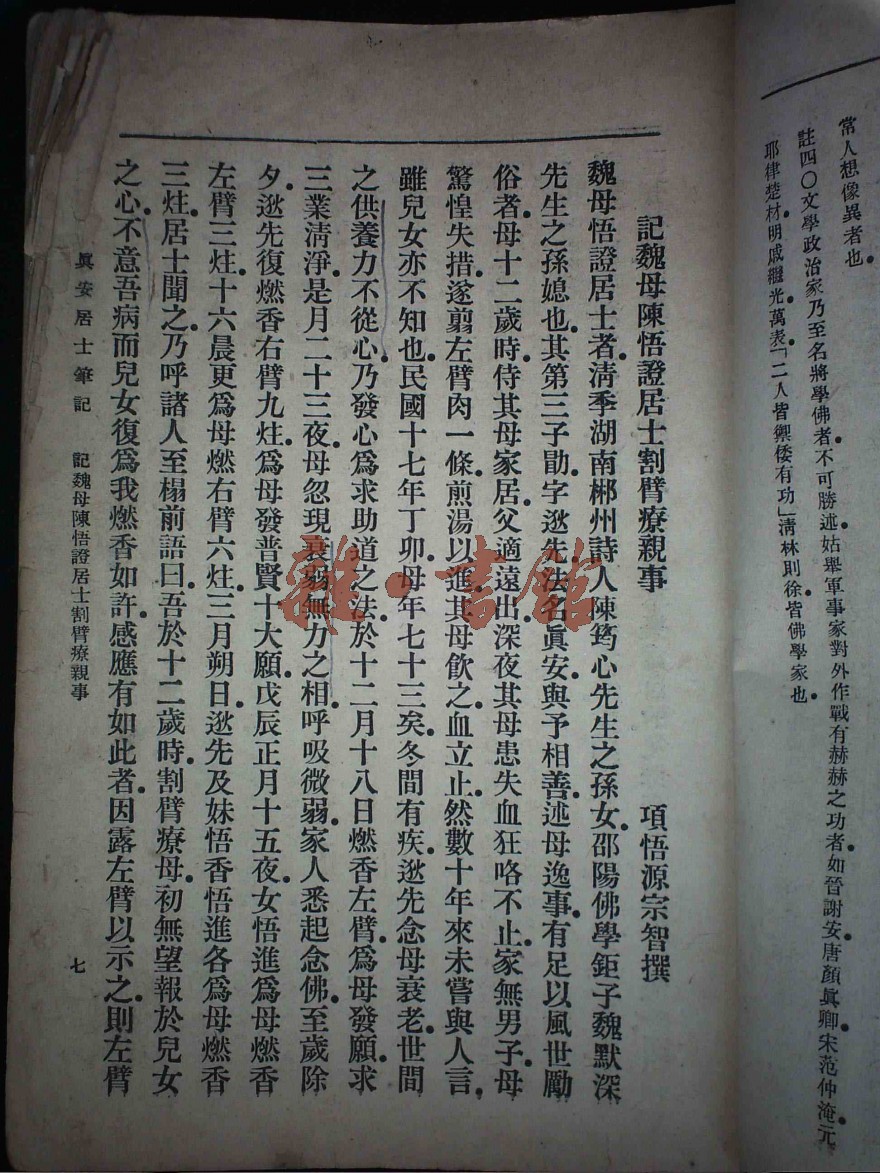 常人想像異者也
註四〇文學政治家乃至名將學佛者不可勝述姑舉軍事家對外作戰有赫赫之功者如晉謝安唐顏眞卿宋范仲淹元
耶律楚材明戚繼光萬表「二人皆禦倭有功」淸林則徐皆佛學家也
記魏母陳悟證居士割臂療親事
項悟源宗智撰
魏母悟證居士者淸季湖南郴州詩人陳筠心先生之孫女邵陽佛學鉅子魏默深
先生之孫媳也其第三子勖字逖先法名眞安與予相善述母逸事有足以風世勵
俗者母十二歲時侍其母家居父適遠出深夜其母患失血狂咯不止家無男子母
驚惶失措遂翦左臂肉一條煎湯以進其母飮之血立止然數十年來未嘗與人言
雖兒女亦不知也民國十七年丁卯母年七十三矣冬間有疾逖先念母衰老世間
之供養力不從心乃發心爲求助道之法於十二月十八日燃香左臂爲母發願求
三業淸淨是月二十三夜母忽現衰弱無力之相呼吸微弱家人悉起念佛至歲除
夕逖先復燃香右臂九炷爲母發普賢十大願戊辰正月十五夜女悟進爲母燃香
左臂三炷十六晨更爲母燃右臂六炷三月朔日逖先及妹悟香悟進各爲母燃香
三炷居士聞之乃呼諸人至榻前語曰吾於十二歲時割臂療母初無望報於兒女
之心不意吾病而兒女復爲我燃香如許感應有如此者因露左臂以示之則左臂
眞安居士筆記 記魏母陳悟證居士割臂療親事 七
雜·書館